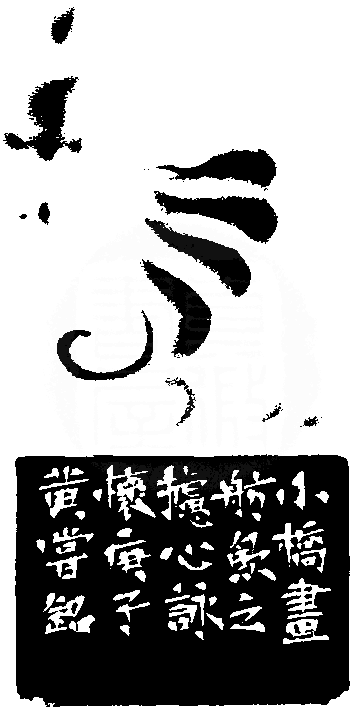 小橋畫
舫魚之
攄心詠
懷庚子
黃嘗銘